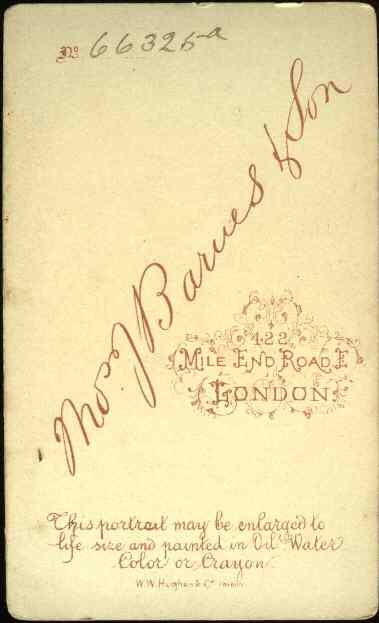 No 66325a
Thos. J Barnes & Son
422
MILE END ROAD E
LONDON.
This portrait may be enlarged to
life size and painted in Oil Water
Color or Crayon.
W.W. Hughes & Co